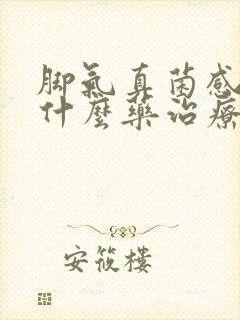 脚氣真菌感
什麼藥治療
安筱樓